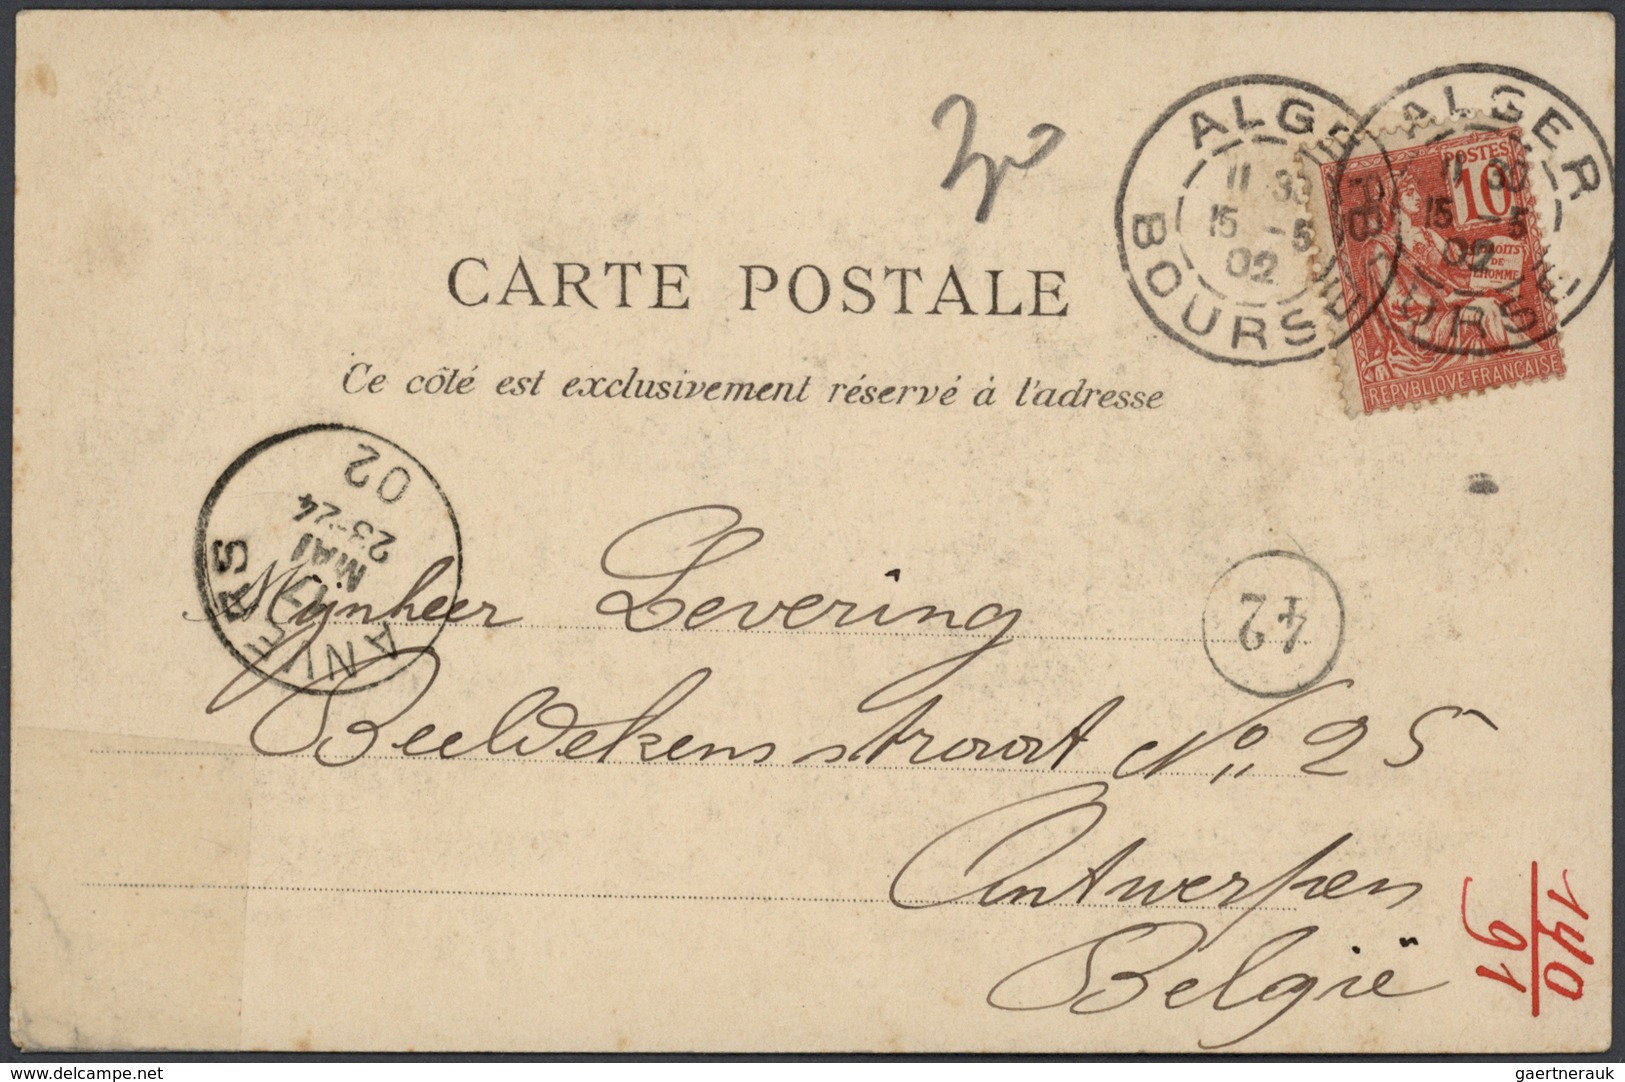 30
ALGER
11 30
15 -5
02
BOURSE
ALGER
11 30
15 -5
02
BOURSE
POSTES
10
DROITS
DE
L'HOMME
REPVBLIQVE·FRANÇAISE
CARTE POSTALE
Ce côté est exclusivement réservé à l'adresse
ANVERS
MAI
23-24
02
42
Mijnheer Levering
Beeldekensstraat No. 25
Antwerpen
België
1410
91
delcampe.net
gaertnerauk